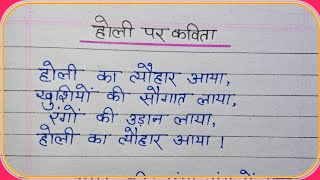 होली पर कविता
होली का त्यौहार आया,
खुशियों की सौगात लाया,
रंगों की उड़ान लाया,
होली का त्यौहार आया ।